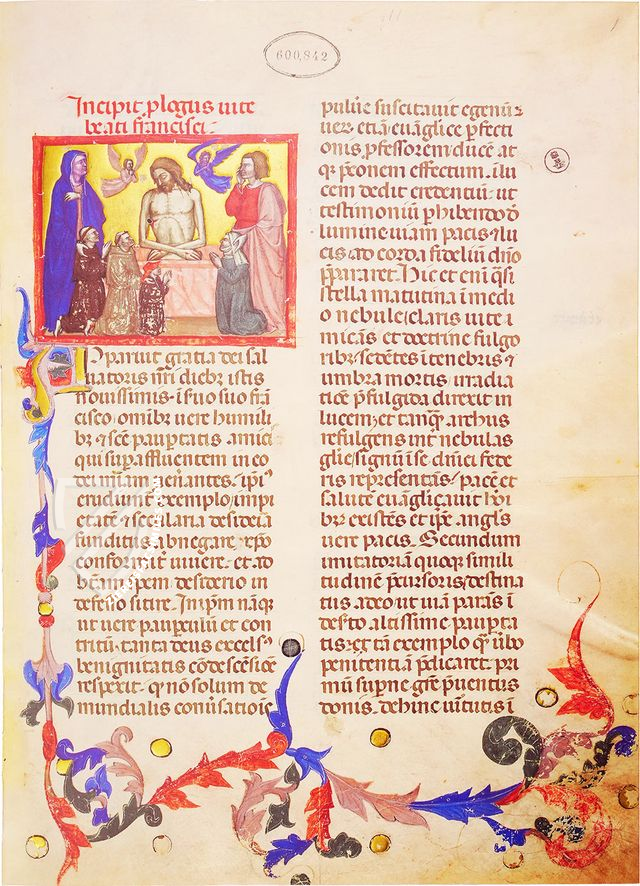 600,842
1
Incipit plogus uite
beati francisci.
Apparuit gratia dei sal
uatoris nri diebz istis
nouissimis. i suo suo frã
cisco. omibz uere humili
bz ⁊ scē paupertatis amici
qui supaffluentem in eo
dei miam uenantes. ipi
erudiunt exemplo. impi
etatē ⁊ secularia desideia
funditus abnegare. xpo
conformit uiuere. et ad
btam spem desiderio in
defesso sitire. In ipm nāqz
ut uere paupculū et con
tritū. tanta deus excels
benignitatis cōdescēsiōe
respexit. qz nō solum de
mundialis conuisatiois
puluere suscitauit egenū ⁊
uerz etiā euāglice pfecti
onis pfessorem ducē at
qz pconem effectum. i lu
cem dedit credentiū. ut
testimoniū phibendo d
lumine uiam pacis ⁊ lu
cis. ad corda fideliū dno
ppararet. Hic et eni qsi
stella matutina i medi
o nebule. claris uite i
micās et doctrine fulgo
ribz. sedētes i tenebris ⁊
umbra mortis. irradia
tiōe pfulgida direxit in
lucem. et tanqz archus
refulgens int nebulas
glie. signū i se dnici fede
ris representās. pacē et
salutē euāglicauit hoi
bz. existēs et ipe angls
uere pacis. Secundum
imitatoriā quoqz simili
tudinē pcursoris. destina
tus a deo ut uiā parās i
desto altissime pauprta
tis. tā exemplo qz ubo
penitentiā pdicaret. pri
mū supne grē pueniens
donis. dehinc uirtutis i